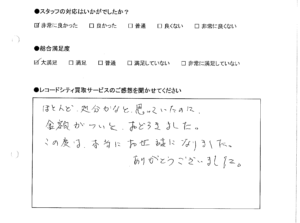 ●スタッフの対応はいかがでしたか？
☑非常に良かった □良かった □普通 □良くない □非常に良くない
●総合満足度
☑大満足 □満足 □普通 □満足していない □非常に満足していない
●レコードシティ買取サービスのご感想を聞かせてください
ほとんど、処分かなと、思っていたのに、
金額がついて、おどろきました。
この度は、本当にお世話になりました。
ありがとうございました。